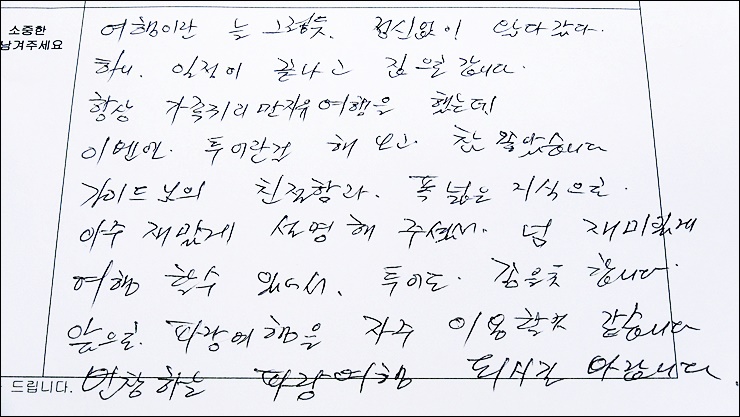 소중한
남겨주세요
여행이란 늘 그렇듯. 정신없이 왔다 갔다.
하니. 일정이 끝나고 집으로 갑니다.
항상 가족끼리만 자유여행을 했는데
이번엔. 투어란걸 해보고. 참 좋았습니다
가이드 분의 친절함과. 폭넓은 지식으로.
아주 재밌게 설명해 주셔서. 넘 재미있게
여행 할수 있어서. 투어도. 감은 합니다.
앞으로. 파랑여행을 자주 이용할것 같습니다
드립니다. 번창하는 파랑여행 되시길 바랍니다